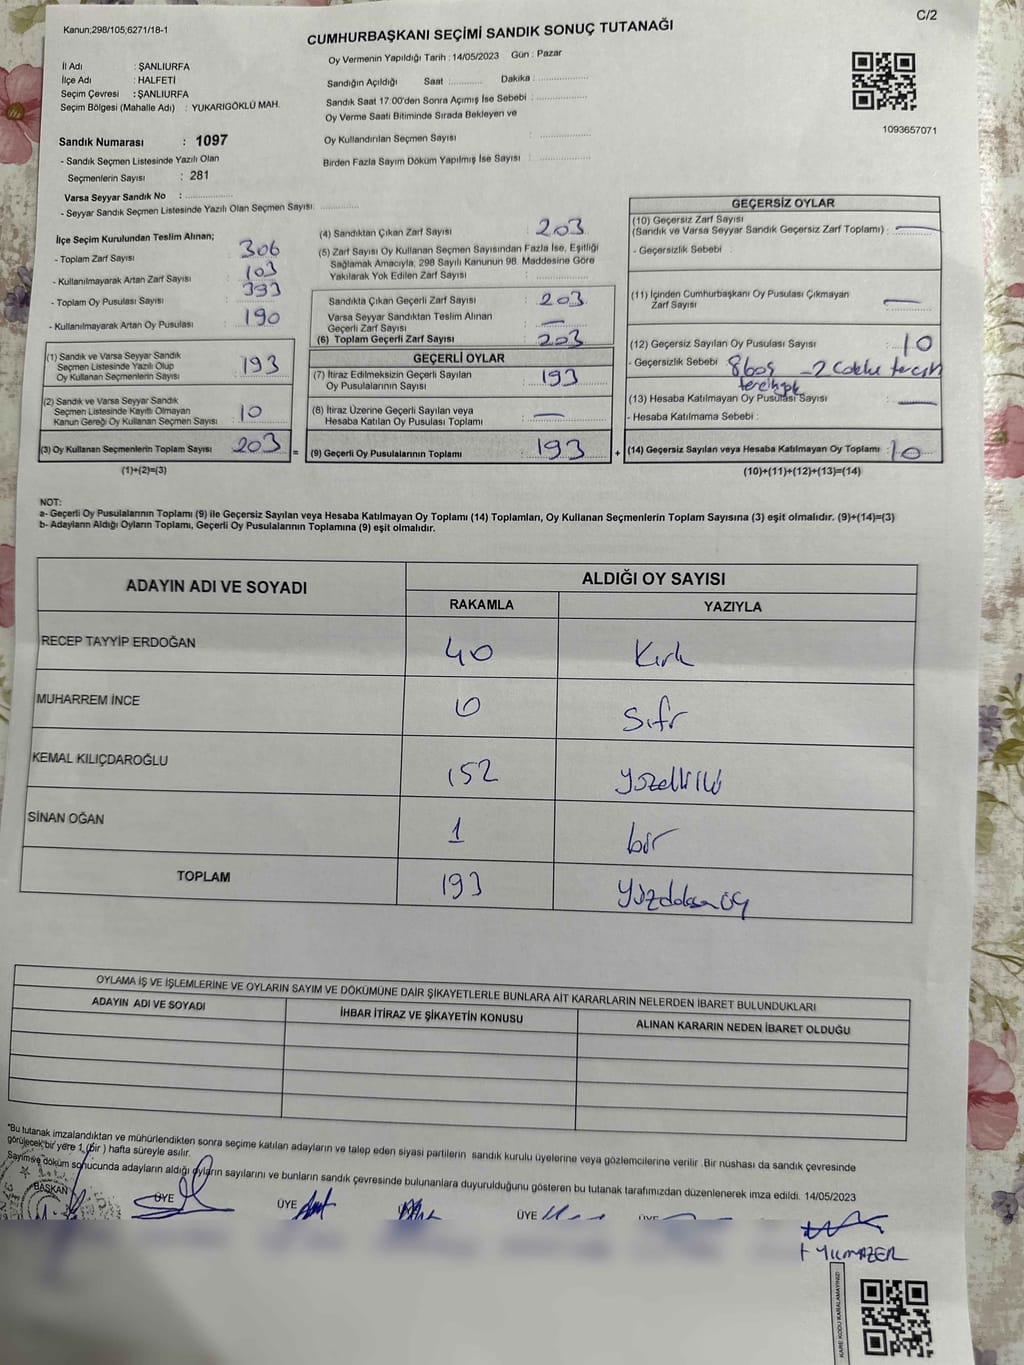 Kanun;298/105;6271/18-1
C/2
CUMHURBAŞKANI SEÇİMİ SANDIK SONUÇ TUTANAĞI
Oy Vermenin Yapıldığı Tarih : 14/05/2023 Gün : Pazar
İl Adı : ŞANLIURFA
İlçe Adı : HALFETİ
Seçim Çevresi : ŞANLIURFA
Seçim Bölgesi (Mahalle Adı) : YUKARIGÖKLÜ MAH.
Sandığın Açıldığı Saat :........... Dakika :...................
Sandık Saat 17:00'den Sonra Açımış İse Sebebi :...................
Oy Verme Saati Bitiminde Sırada Bekleyen ve
Oy Kullandırılan Seçmen Sayısı :...................
Birden Fazla Sayım Döküm Yapılmış İse Sayısı :...................
1093657071
Sandık Numarası : 1097
- Sandık Seçmen Listesinde Yazılı Olan
Seçmenlerin Sayısı : 281
Varsa Seyyar Sandık No :...................
- Seyyar Sandık Seçmen Listesinde Yazılı Olan Seçmen Sayısı:...............
İlçe Seçim Kurulundan Teslim Alınan;
- Toplam Zarf Sayısı : 306
- Kullanılmayarak Artan Zarf Sayısı : 103
- Toplam Oy Pusulası Sayısı : 393
- Kullanılmayarak Artan Oy Pusulası : 190
(1) Sandık ve Varsa Seyyar Sandık
Seçmen Listesinde Yazılı Olup
Oy Kullanan Seçmenlerin Sayısı : 193
(2) Sandık ve Varsa Seyyar Sandık
Seçmen Listesinde Kayıtlı Olmayan
Kanun Gereği Oy Kullanan Seçmen Sayısı : 10
(3) Oy Kullanan Seçmenlerin Toplam Sayısı : 203 =
(1)+(2)=(3)
(4) Sandıktan Çıkan Zarf Sayısı : 203
(5) Zarf Sayısı Oy Kullanan Seçmen Sayısından Fazla İse, Eşitliği
Sağlamak Amacıyla, 298 Sayılı Kanunun 98. Maddesine Göre
Yakılarak Yok Edilen Zarf Sayısı :...............
Sandıkta Çıkan Geçerli Zarf Sayısı : 203
Varsa Seyyar Sandıktan Teslim Alınan
Geçerli Zarf Sayısı : —
(6) Toplam Geçerli Zarf Sayısı : 203
GEÇERLİ OYLAR
(7) İtiraz Edilmeksizin Geçerli Sayılan
Oy Pusulalarının Sayısı : 193
(8) İtiraz Üzerine Geçerli Sayılan veya
Hesaba Katılan Oy Pusulası Toplamı : —
(9) Geçerli Oy Pusulalarının Toplamı : 193 +
GEÇERSİZ OYLAR
(10) Geçersiz Zarf Sayısı
(Sandık ve Varsa Seyyar Sandık Geçersiz Zarf Toplamı) : —
- Geçersizlik Sebebi :
(11) İçinden Cumhurbaşkanı Oy Pusulası Çıkmayan
Zarf Sayısı : —
(12) Geçersiz Sayılan Oy Pusulası Sayısı : 10
- Geçersizlik Sebebi : 8 boş - 2 Çoklu tercih
tercih yok
(13) Hesaba Katılmayan Oy Pusulası Sayısı : —
- Hesaba Katılmama Sebebi :
(14) Geçersiz Sayılan veya Hesaba Katılmayan Oy Toplamı : 10
(10)+(11)+(12)+(13)=(14)
NOT:
a- Geçerli Oy Pusulalarının Toplamı (9) ile Geçersiz Sayılan veya Hesaba Katılmayan Oy Toplamı (14) Toplamları, Oy Kullanan Seçmenlerin Toplam Sayısına (3) eşit olmalıdır. (9)+(14)=(3)
b- Adayların Aldığı Oyların Toplamı, Geçerli Oy Pusulalarının Toplamına (9) eşit olmalıdır.
ADAYIN ADI VE SOYADI ALDIĞI OY SAYISI
RAKAMLA YAZIYLA
RECEP TAYYİP ERDOĞAN 40 Kırk
MUHARREM İNCE 0 Sıfır
KEMAL KILIÇDAROĞLU 152 Yüzelliiki
SİNAN OĞAN 1 bir
TOPLAM 193 Yüzdoksanüç
OYLAMA İŞ VE İŞLEMLERİNE VE OYLARIN SAYIM VE DÖKÜMÜNE DAİR ŞİKAYETLERLE BUNLARA AİT KARARLARIN NELERDEN İBARET BULUNDUKLARI
ADAYIN ADI VE SOYADI İHBAR İTİRAZ VE ŞİKAYETİN KONUSU ALINAN KARARIN NEDEN İBARET OLDUĞU
"Bu tutanak imzalandıktan ve mühürlendikten sonra seçime katılan adayların ve talep eden siyasi partilerin sandık kurulu üyelerine veya gözlemcilerine verilir .Bir nüshası da sandık çevresinde
görülecek bir yere 1 (bir ) hafta süreyle asılır.
Sayım ve döküm sonucunda adayların aldığı oyların sayılarını ve bunların sandık çevresinde bulunanlara duyurulduğunu gösteren bu tutanak tarafımızdan düzenlenerek imza edildi. 14/05/2023
BAŞKAN ÜYE ÜYE ÜYE ÜYE ÜYE
YILMAZER
KARE KODU KARALAMAYINIZ!